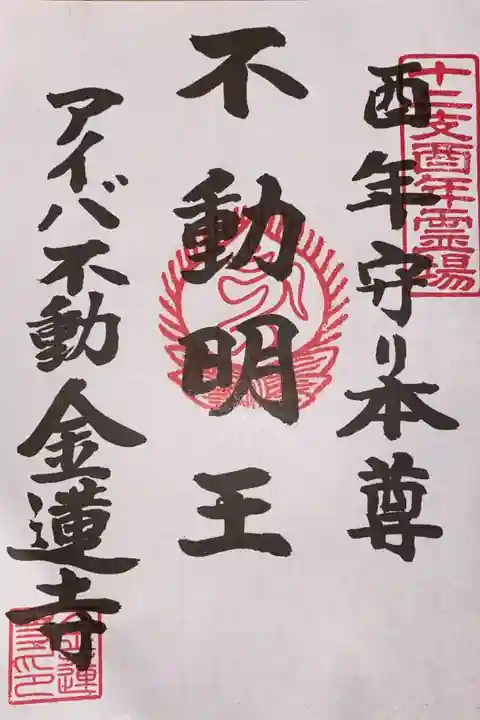 十二支酉年霊場
酉年守り本尊
不動明王
アイバ不動
金蓮寺